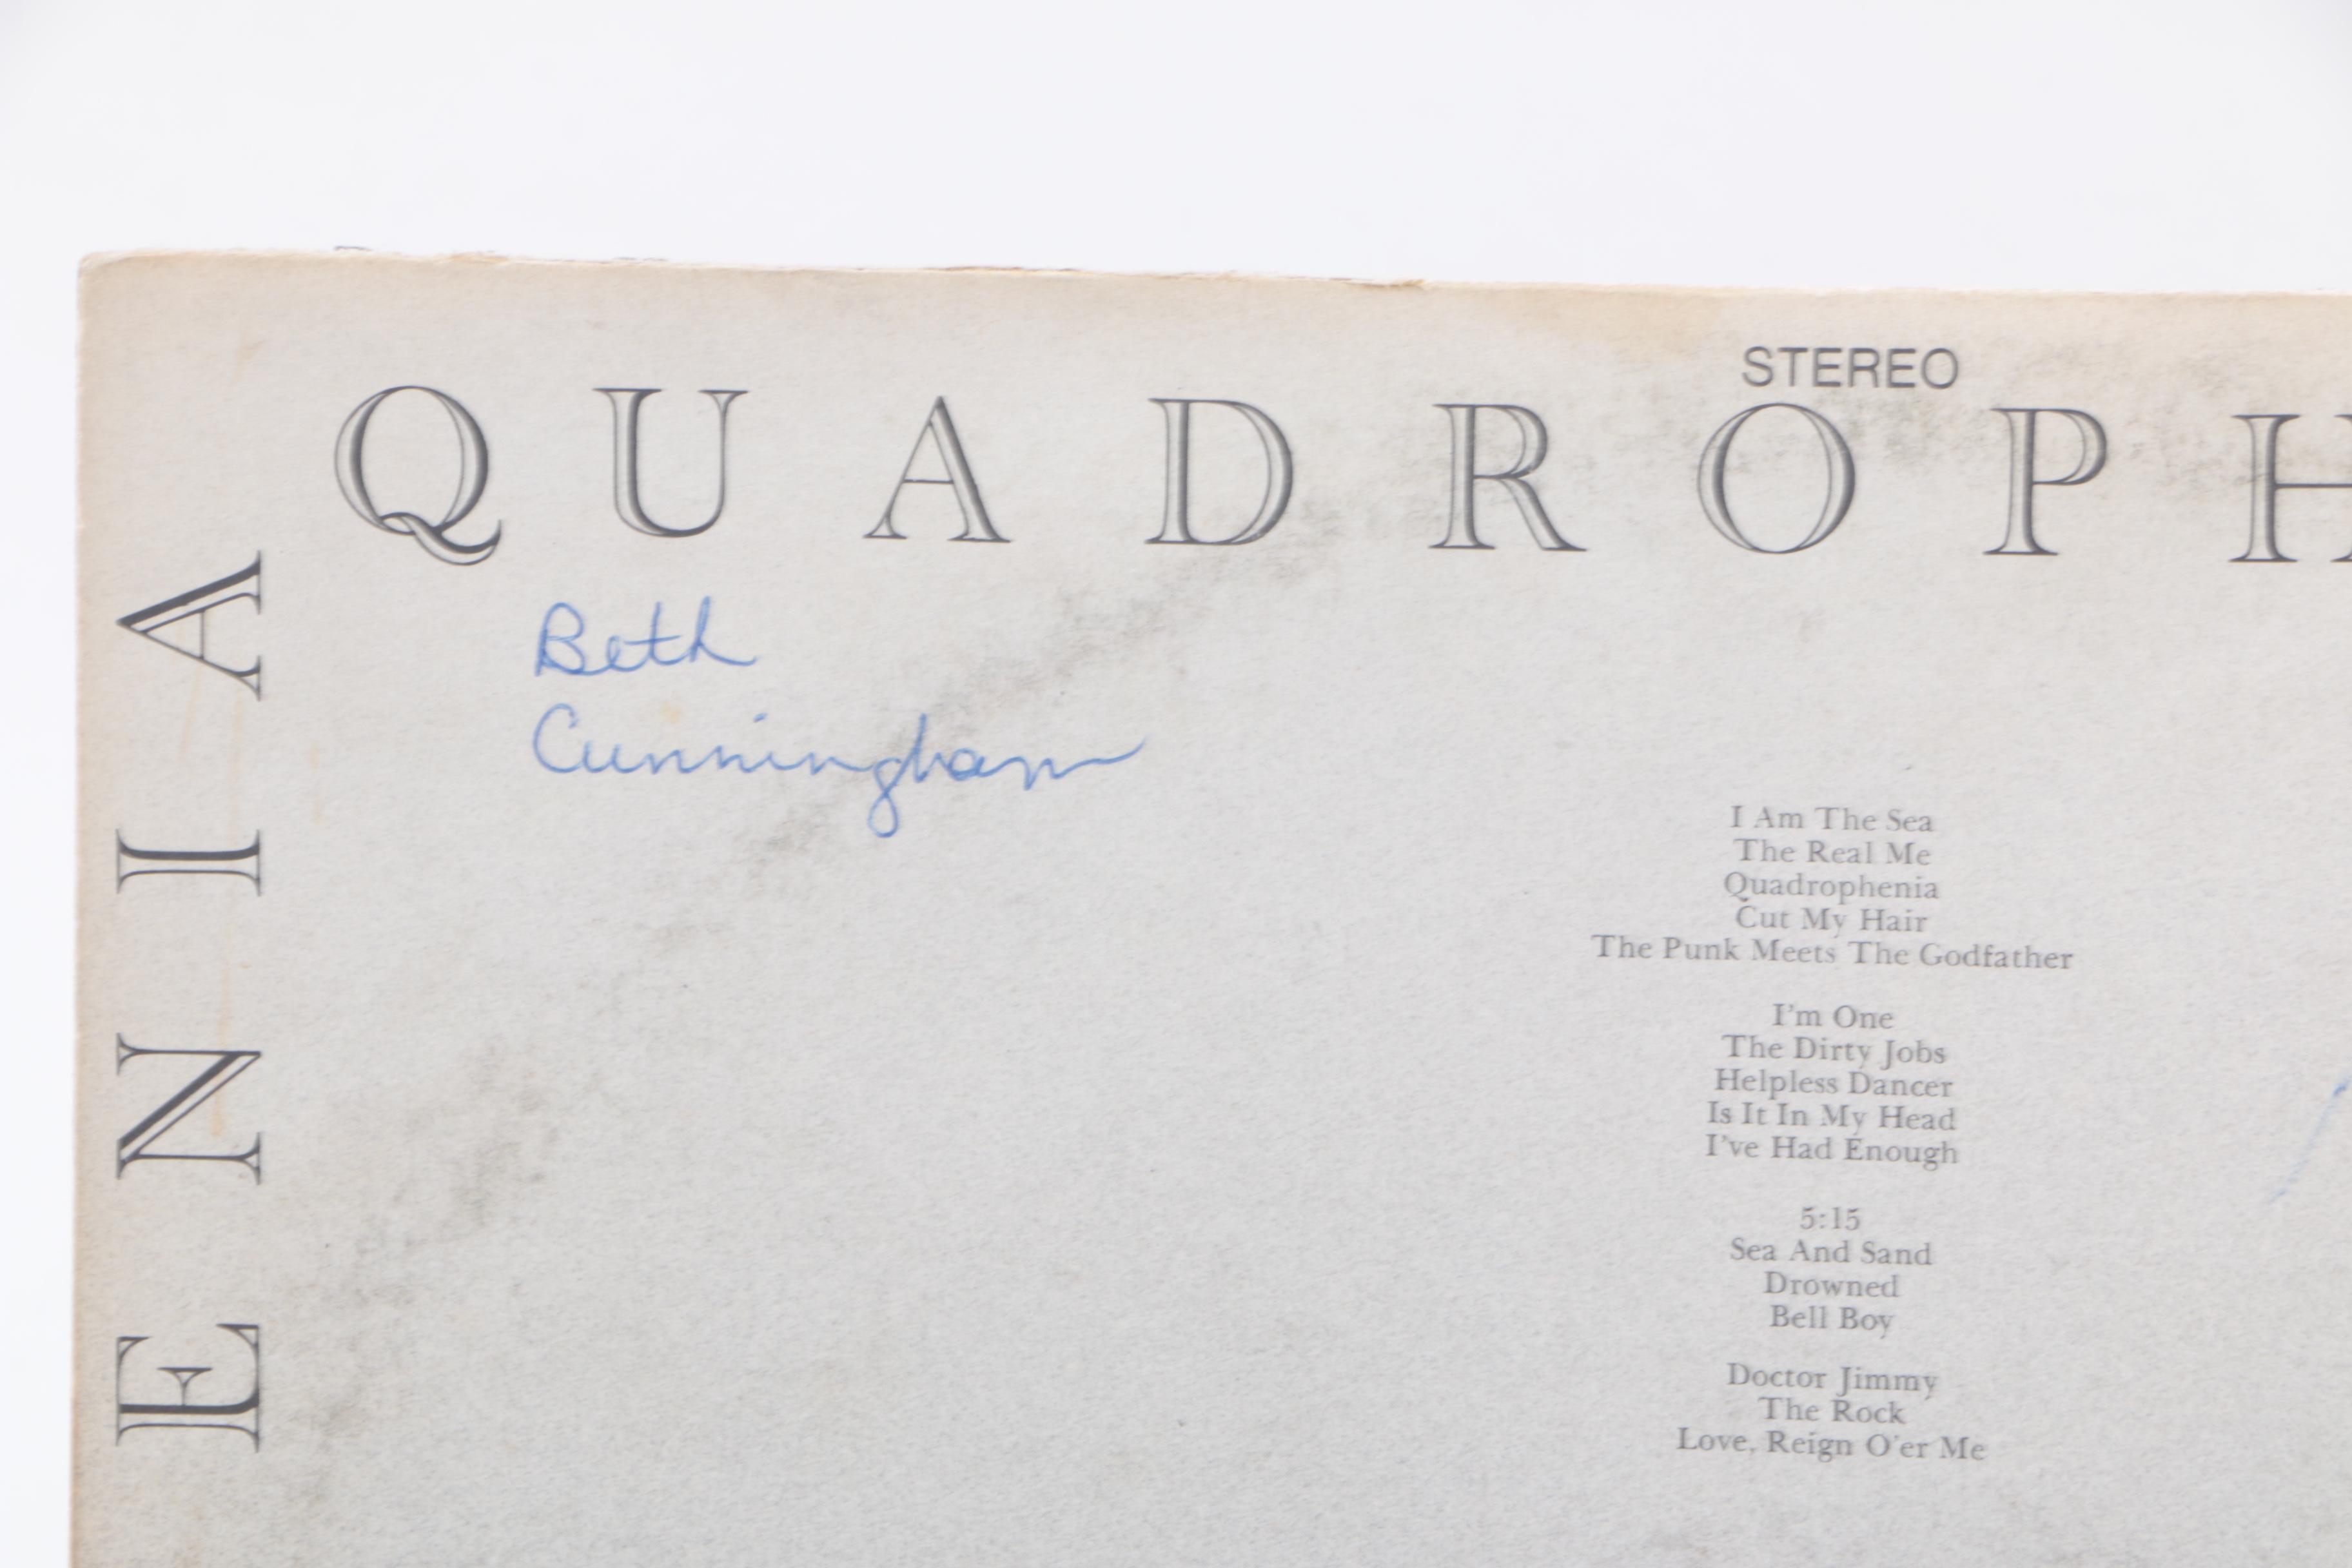 STEREO
QUADROPH
ENIA
Beth
Cunningham
I Am The Sea
The Real Me
Quadrophenia
Cut My Hair
The Punk Meets The Godfather
I'm One
The Dirty Jobs
Helpless Dancer
Is It In My Head
I've Had Enough
5:15
Sea And Sand
Drowned
Bell Boy
Doctor Jimmy
The Rock
Love, Reign O'er Me